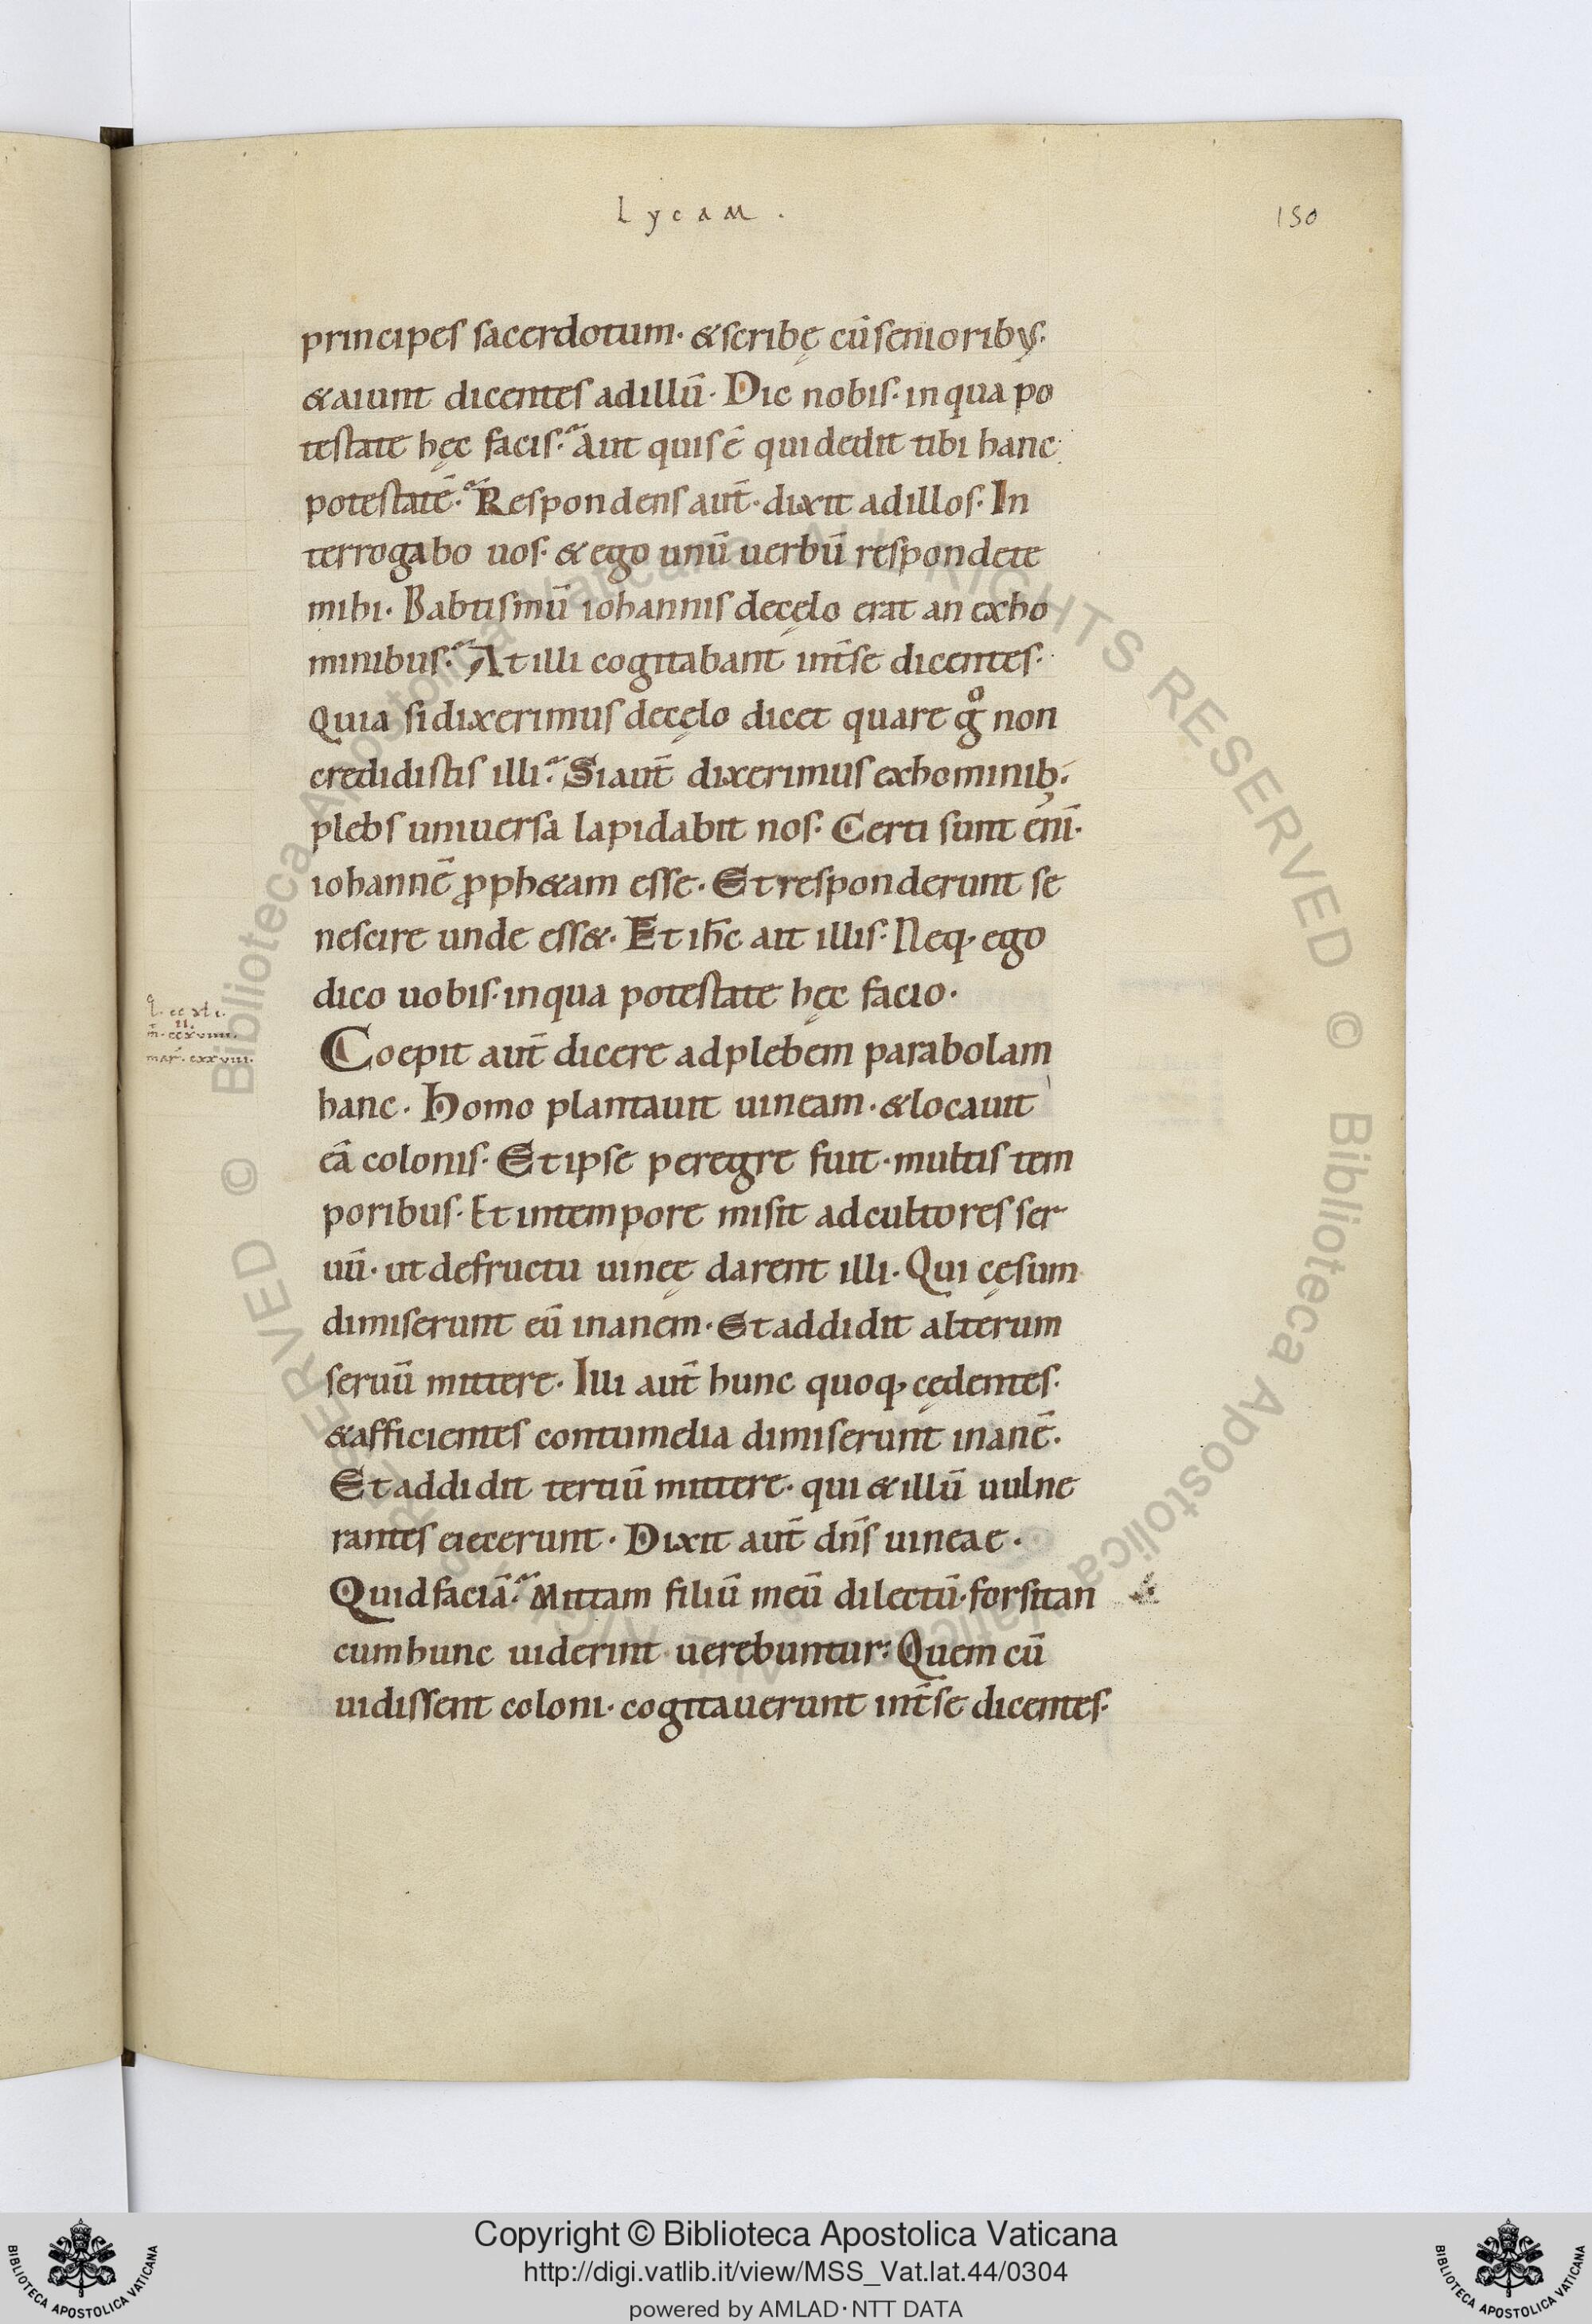 Lycam.
150
principes sacerdotum· & scribę cū senioribus·
& aiunt dicentes ad illū· Dic nobis· in qua po
testate hęc facis? Aut quis ē qui dedit tibi hanc
potestatē? Respondens aut̄· dixit ad illos· In
terrogabo uos· & ego unū uerbū respondete
mihi· Babtismū iohannis de cęlo erat an ex ho
minibus? At illi cogitabant int̄ se dicentes·
Quia si dixerimus de cęlo dicet quare gͦ non
credidistis illi? Si aut̄ dixerimus ex hominib;·
plebs uniuersa lapidabit nos· Certi sunt enī·
iohannē ꝓph&am esse· Et responderunt se
nescire unde ess&· Et ih̄c ait illis· Neq; ego
dico uobis· in qua potestate hęc facio·
Coepit aut̄ dicere ad plebem parabolam
hanc· Homo plantauit uineam· & locauit
eā colonis· Et ipse peregre fuit· multis tem
poribus· Et in tempore misit ad cultores ser
uū· ut de fructu uineę darent illi· Qui cęsum
dimiserunt eū inanem· Et addidit alterum
seruū mittere· Illi aut̄ hunc quoq; cędentes·
& afficientes contumelia dimiserunt inanē·
Et addidit tertiū mittere· qui & illū uulne
rantes eiecerunt· Dixit aut̄ dn̄s uineae·
Quid faciā? Mittam filiū meū dilectū· forsitan
cum hunc uiderint uerebuntur: Quem cū
uidissent coloni· cogitauerunt int̄ se dicentes·
l· ccxli·
II·
m̄· ccxviiii·
mar̄· cxxviii·
© Biblioteca Apostolica Vaticana ALL RIGHTS RESERVED
© Biblioteca Apostolica Vaticana ALL RIGHTS RESERVED
Copyright © Biblioteca Apostolica Vaticana
http://digi.vatlib.it/view/MSS_Vat.lat.44/0304
powered by AMLAD·NTT DATA
BIBLIOTECA APOSTOLICA VATICANA
BIBLIOTECA APOSTOLICA VATICANA